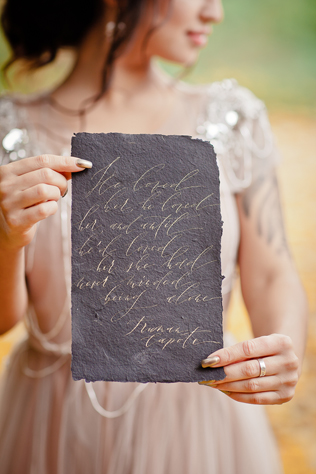 She loved
her he loved
her and until
he'd loved
her she had
never minded
being alone
Truman
Capote